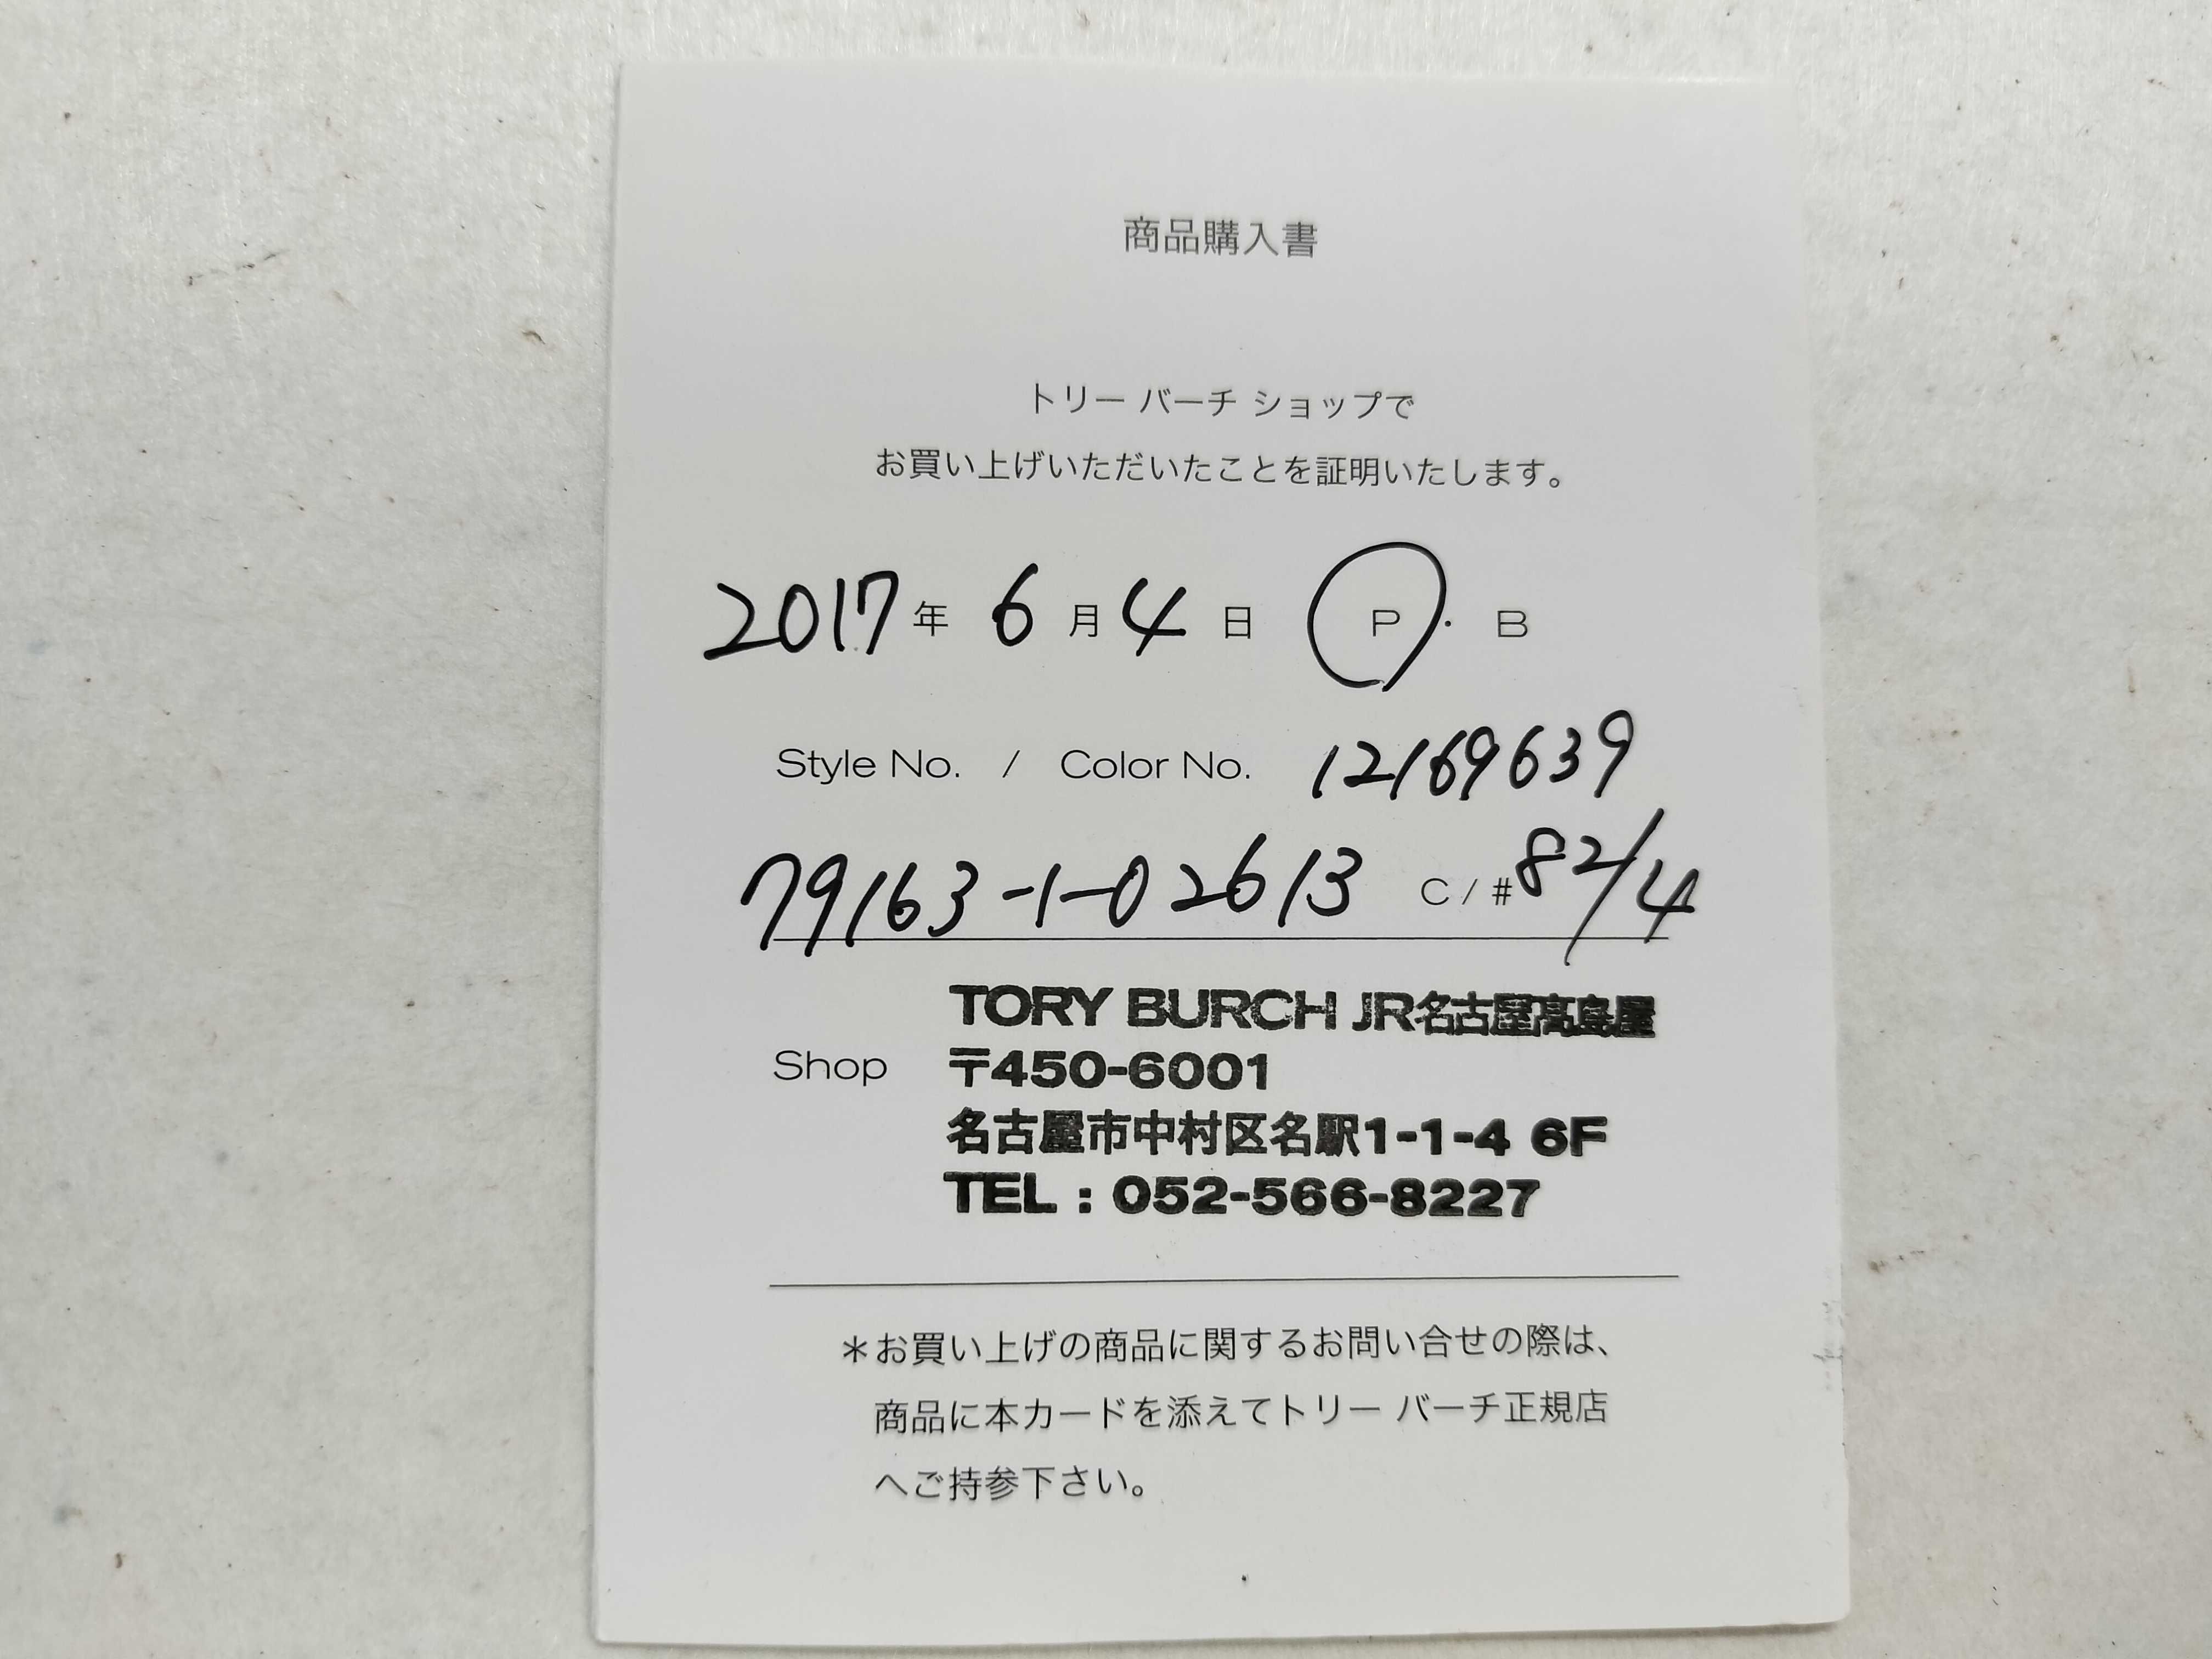 商品購入書
トリー バーチ ショップで
お買い上げいただいたことを証明いたします。
2017 年 6 月 4 日 P · B
Style No. / Color No. 12169639
79163-1-02613 C / # 82/4
TORY BURCH JR名古屋髙島屋
Shop 〒450-6001
名古屋市中村区名駅1-1-4 6F
TEL : 052-566-8227
＊お買い上げの商品に関するお問い合せの際は、
商品に本カードを添えてトリー バーチ正規店
へご持参下さい。